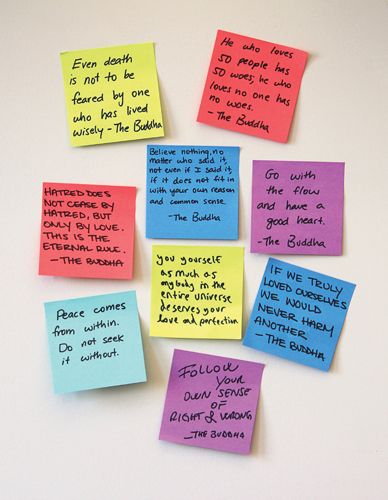 Even death
is not to be
feared by one
who has lived
wisely - The Buddha
He who loves
50 people has
50 woes; he who
loves no one has
no woes.
- The Buddha
Believe nothing, no
matter who said it,
not even if I said it,
if it does not fit in
with your own reason
and common sense.
- The Buddha
Go with
the flow
and have a
good heart.
- The Buddha
HATRED DOES
NOT CEASE BY
HATRED, BUT
ONLY BY LOVE.
THIS IS THE
ETERNAL RULE.
- THE BUDDHA
you yourself
as much as
anybody in the
entire universe
deserves your
love and perfection
IF WE TRULY
LOVED OURSELVES
WE WOULD
NEVER HARM
ANOTHER
- THE BUDDHA
Peace comes
from within.
Do not seek
it without.
FOLLOW
YOUR
OWN SENSE
OF
RIGHT & WRONG
- THE BUDDHA